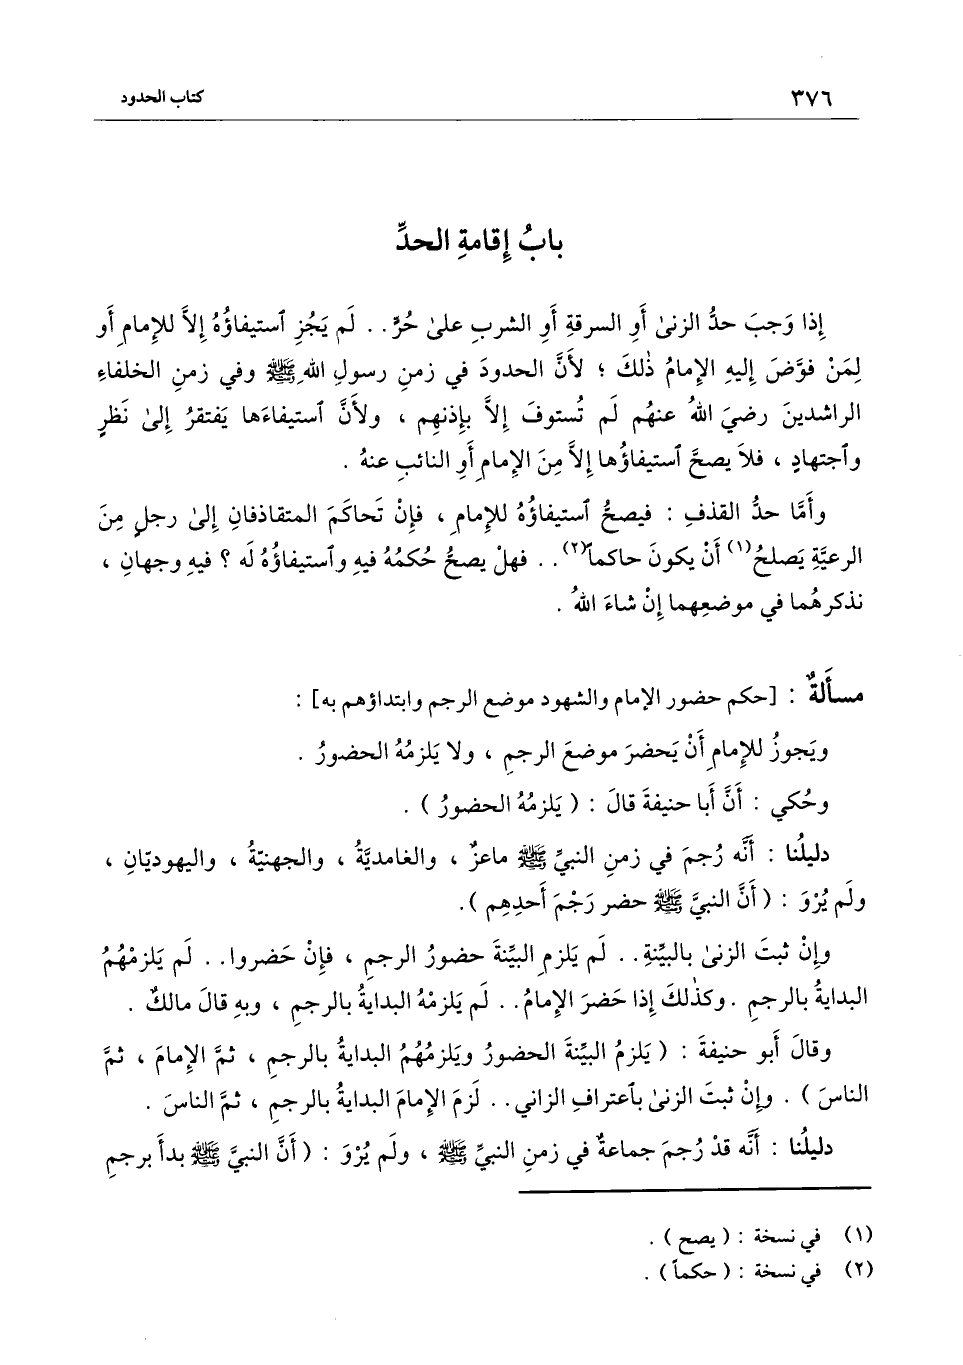 ٣٧٦ كتاب الحدود
بابُ إِقامةِ الحدِّ
إِذا وَجبَ حدُّ الزنىٰ أَوِ السرقةِ أَوِ الشربِ علىٰ حُرٍّ . . لَم يَجُزِ ٱستيفاؤُهُ إِلاَّ للإِمامِ أَو
لِمَنْ فوَّضَ إِليهِ الإِمامُ ذٰلكَ ؛ لأَنَّ الحدودَ في زمنِ رسولِ اللهِ ﷺ وفي زمنِ الخلفاءِ
الراشدينَ رضيَ اللهُ عنهُم لَم تُستوفَ إِلاَّ بإِذنِهِم ، ولأَنَّ ٱستيفاءَها يَفتقرُ إِلىٰ نَظرٍ
وٱجتهادٍ ، فلاَ يصحَّ ٱستيفاؤُها إِلاَّ مِنَ الإِمامِ أَوِ النائبِ عنهُ .
وأَمَّا حدُّ القذفِ : فيصحُّ ٱستيفاؤُهُ للإِمامِ ، فإِنْ تَحاكَمَ المتقاذفانِ إِلىٰ رجلٍ مِنَ
الرعيَّةِ يَصلحُ(١) أَنْ يكونَ حاكماً(٢) . . فهلْ يصحُّ حُكمُهُ فيهِ وٱستيفاؤُهُ لَه ؟ فيهِ وجهانِ ،
نذكرهُما في موضعِهما إِنْ شاءَ اللهُ .
مسأَلةٌ : [حكم حضور الإمام والشهود موضع الرجم وابتداؤهم به] :
ويَجوزُ للإِمامِ أَنْ يَحضرَ موضعَ الرجمِ ، ولا يَلزمُهُ الحضورُ .
وحُكي : أَنَّ أَبا حنيفةَ قالَ : ( يَلزمُهُ الحضورُ ) .
دليلُنا : أَنَّه رُجمَ في زمنِ النبيِّ ﷺ ماعزٌ ، والغامديَّةُ ، والجهنيّةُ ، واليهوديّانِ ،
ولَم يُرْوَ : ( أَنَّ النبيَّ ﷺ حضر رَجْمَ أَحدِهِم ).
وإِنْ ثبتَ الزنىٰ بالبيِّنةِ . . لَم يَلزمِ البيِّنةَ حضورُ الرجمِ ، فإِنْ حَضروا . . لَم يَلزمْهُمُ
البدايةُ بالرجمِ . وكذٰلكَ إِذا حَضرَ الإِمامُ . . لَم يَلزمْهُ البدايةُ بالرجمِ ، وبهِ قالَ مالكٌ .
وقالَ أَبو حنيفةَ : ( يَلزمُ البيِّنةَ الحضورُ ويَلزمُهُمُ البدايةُ بالرجمِ ، ثمَّ الإِمامَ ، ثمَّ
الناسَ ) . وإِنْ ثبتَ الزنىٰ بٱعترافِ الزاني . . لَزمَ الإِمامَ البدايةُ بالرجمِ ، ثمَّ الناسَ .
دليلُنا : أَنَّه قدْ رُجمَ جماعةٌ في زمنِ النبيِّ ﷺ ، ولَم يُرْوَ : ( أَنَّ النبيَّ ﷺ بدأَ برجمِ
(١) في نسخة : ( يصح ) .
(٢) في نسخة : ( حكماً ) .